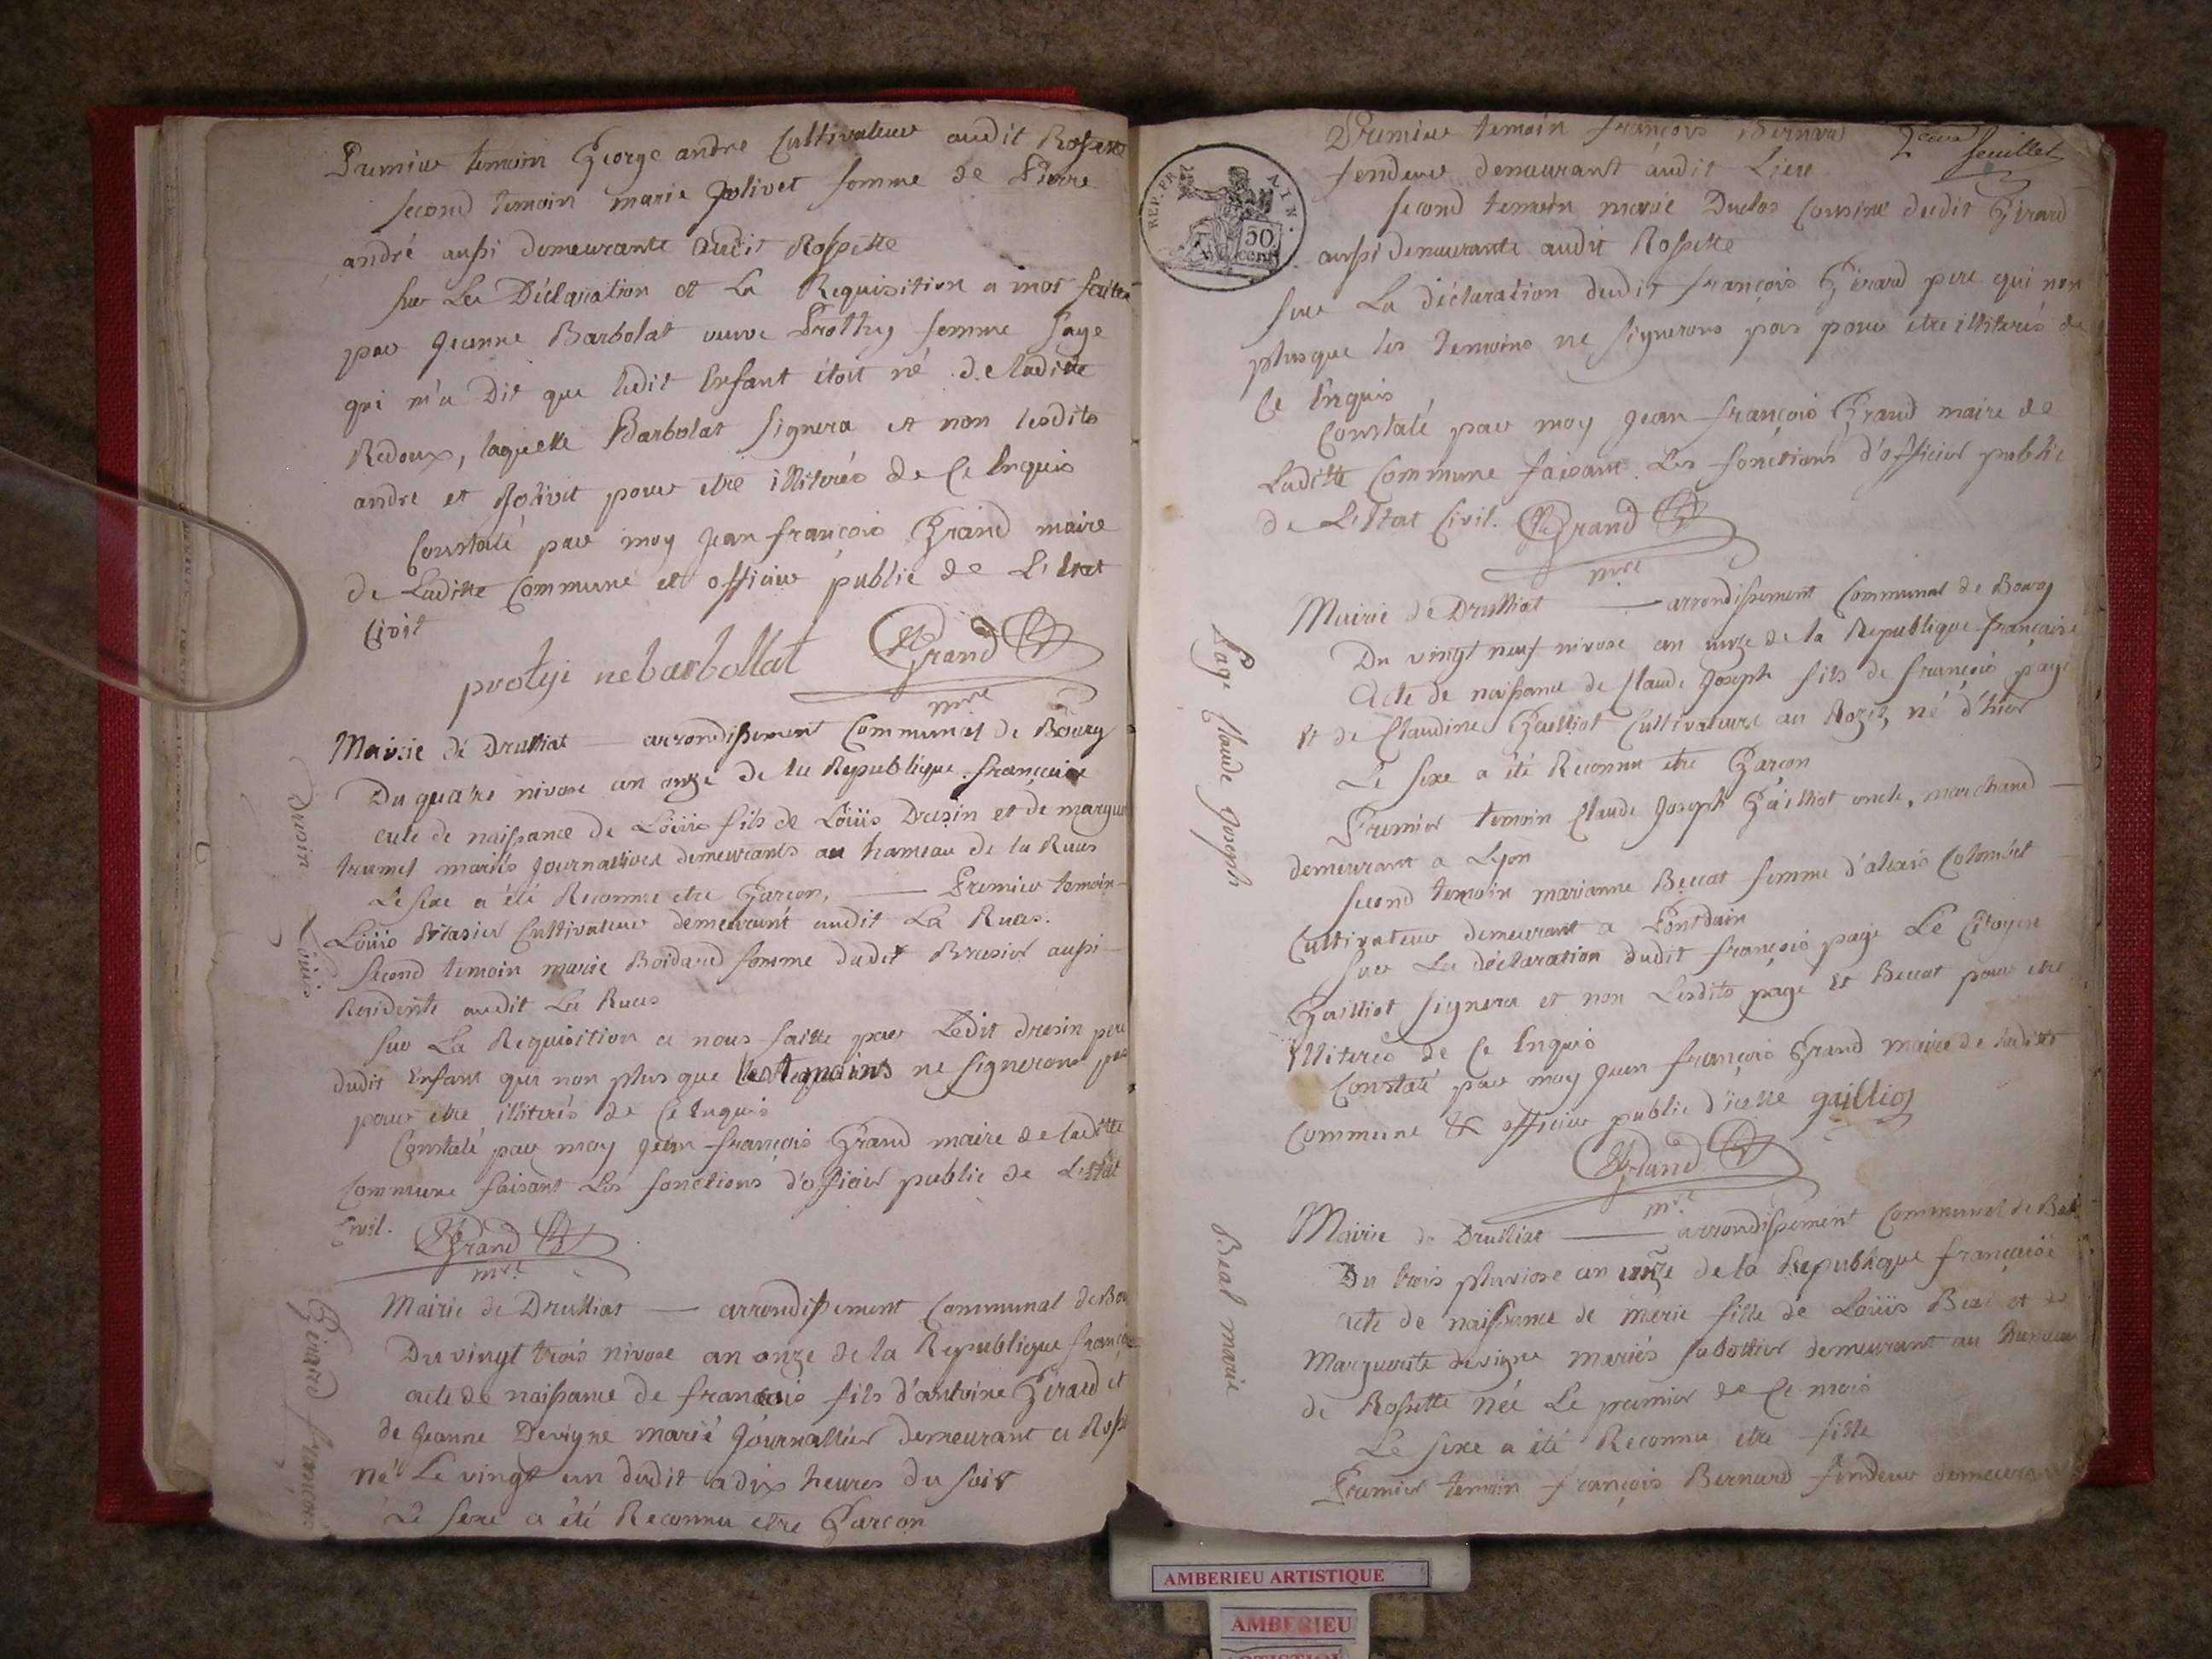 Premier temoin George andre Cultivateur audit Rossette
second temoin marie Jolivet femme de Pierre
andré aussi demeurante audit Rossette
sur La Déclaration et La Requisition a moy faitte
par Jeanne Barbolat veuve Prothy femme sage
qui m'a Dit que ledit Enfant étoit né de ladite
Redoux, laquelle Barbolat signera et non lesdits
andre et Jolivet pour etre illiterés de Ce Enquis
Constaté par moy Jean françois Grand maire
de Laditte Commune et officier public de L'Etat
Civil
proteji ne barbollat Grand
mre
Mairie de Druillat — arrondissement Communal de Bourg
Du quatre nivose an onze de la Republique française
acte de naissance de Loüis fils de Loüis Dresin et de margue
trumel mariés Journallier demeurants au hameau de la Ruas
Le sexe a été Reconnu etre Garcon, — Premier temoin
Loüis Brasier Cultivateur demeurant audit La Ruas.
Second temoin marie Boidard femme dudit Brasier aussi
Residente audit La Ruas
sur La Requisition a nous faitte par Ledit dresin pere
dudit Enfant qui non plus que les temoins ne signerons pas
pour etre illiterés de Ce Enquis
Constaté par moy Jean françois Grand maire de laditte
Commune faisant Les fonctions d'officier public de L'Etat
Civil. Grand
mre
Dresin Loüis
Mairie de Druillat — arrondissement Communal de Bou
Du vingt trois nivose an onze de la Republique françoise
acte de naissance de francois fils d'antoine Girard et
de Jeanne Devigne marié Journallier demeurant a Ross
né Le vingt un dudit a dix heures du soir
Le sexe a été Reconnu etre Garcon
Girard francois
2eme feuillet
REP. FRA. AIN.
50 cent
Premier temoin françois Bernard
fendeur demeurant audit Lieu
second temoin marie Duclos Cousine dudit Girard
aussi demeurante audit Rossette
sur La déclaration dudit françois Girard pere qui non
plus que les temoins ne signerons pas pour etre illiterés de
Ce Enquis
Constaté par moy Jean françois Grand maire de
Laditte Commune faisant Les fonctions d'officier public
de L'Etat Civil. Grand
mre
Mairie de Druillat — arrondissement Communal de Bourg
Du vingt neuf nivose an onze de la Republique française
Acte de naissance de Claude Joseph fils de françois page
Et de Claudine Gailliot Cultivateurs au Rozit, né d'hier
Le sexe a été Reconnu etre Garcon
Premier temoin Claude Joseph Gailliot oncle, marchand
demeurant a Lyon
second temoin marianne Beccat femme d'alexis Colomb
Cultivateur demeurant a Pontdain
sur La déclaration dudit françois page Le Citoyen
Gailliot signera et non Lesdits page Et Beccat pour etre
illiterés de Ce Enquis
Constaté par moy Jean françois Grand maire de laditte
Commune & officier public d'icelle gailliot
Grand
mre
Page Claude Joseph
Mairie de Druillat — arrondissement Communal de Bo
Du trois pluviose an onze de la Republique française
acte de naissance de Marie fille de Loüis Beal et de
Marguerite devigne mariés sabottier demeurant au hameau
de Rossette née Le premier de Ce mois
Le sexe a été Reconnu etre fille
Premier temoin françois Bernard fendeur demeurant
Beal marie
AMBERIEU ARTISTIQUE
AMBERIEU
ARTISTIQUE